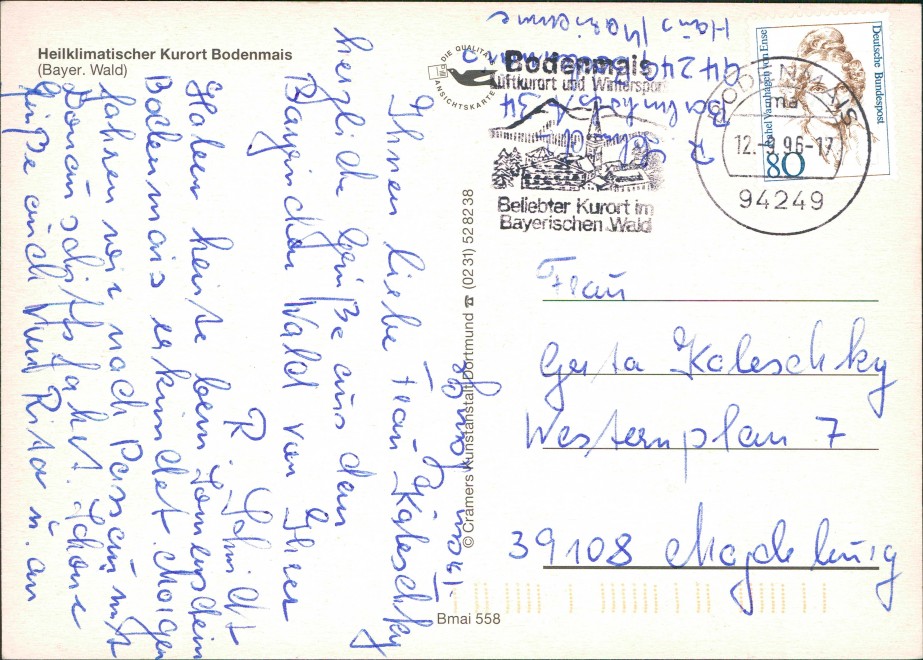 Heilklimatischer Kurort Bodenmais
(Bayer. Wald)
Ihnen liebe Frau Kaleschky
herzliche Grüße aus dem
Bayrischen Wald von Ihrer
R. Schmidt
Haben heute beim Sonnenschein
Bodenmais erkundet. Morgen
fahren wir nach Passau mit
Donauschifffahrt. Schöne
Grüße auch Rita u. an
DIE QUALITÄTS
ANSICHTSKARTE
© Cramers Kunstanstalt Dortmund ☎ (02 31) 52 82 38
Bmai 558
Bodenmais
Luftkurort und Wintersport
Beliebter Kurort im
Bayerischen Wald
BODENMAIS
ma
12.-9.96-17
94249
Deutsche Bundespost
Rahel Varnhagen von Ense
80
R. Schmidt
94249 Bodenmais
Haus
Frau
Gerta Kaleschky
Westernplan 7
39108 Magdeburg